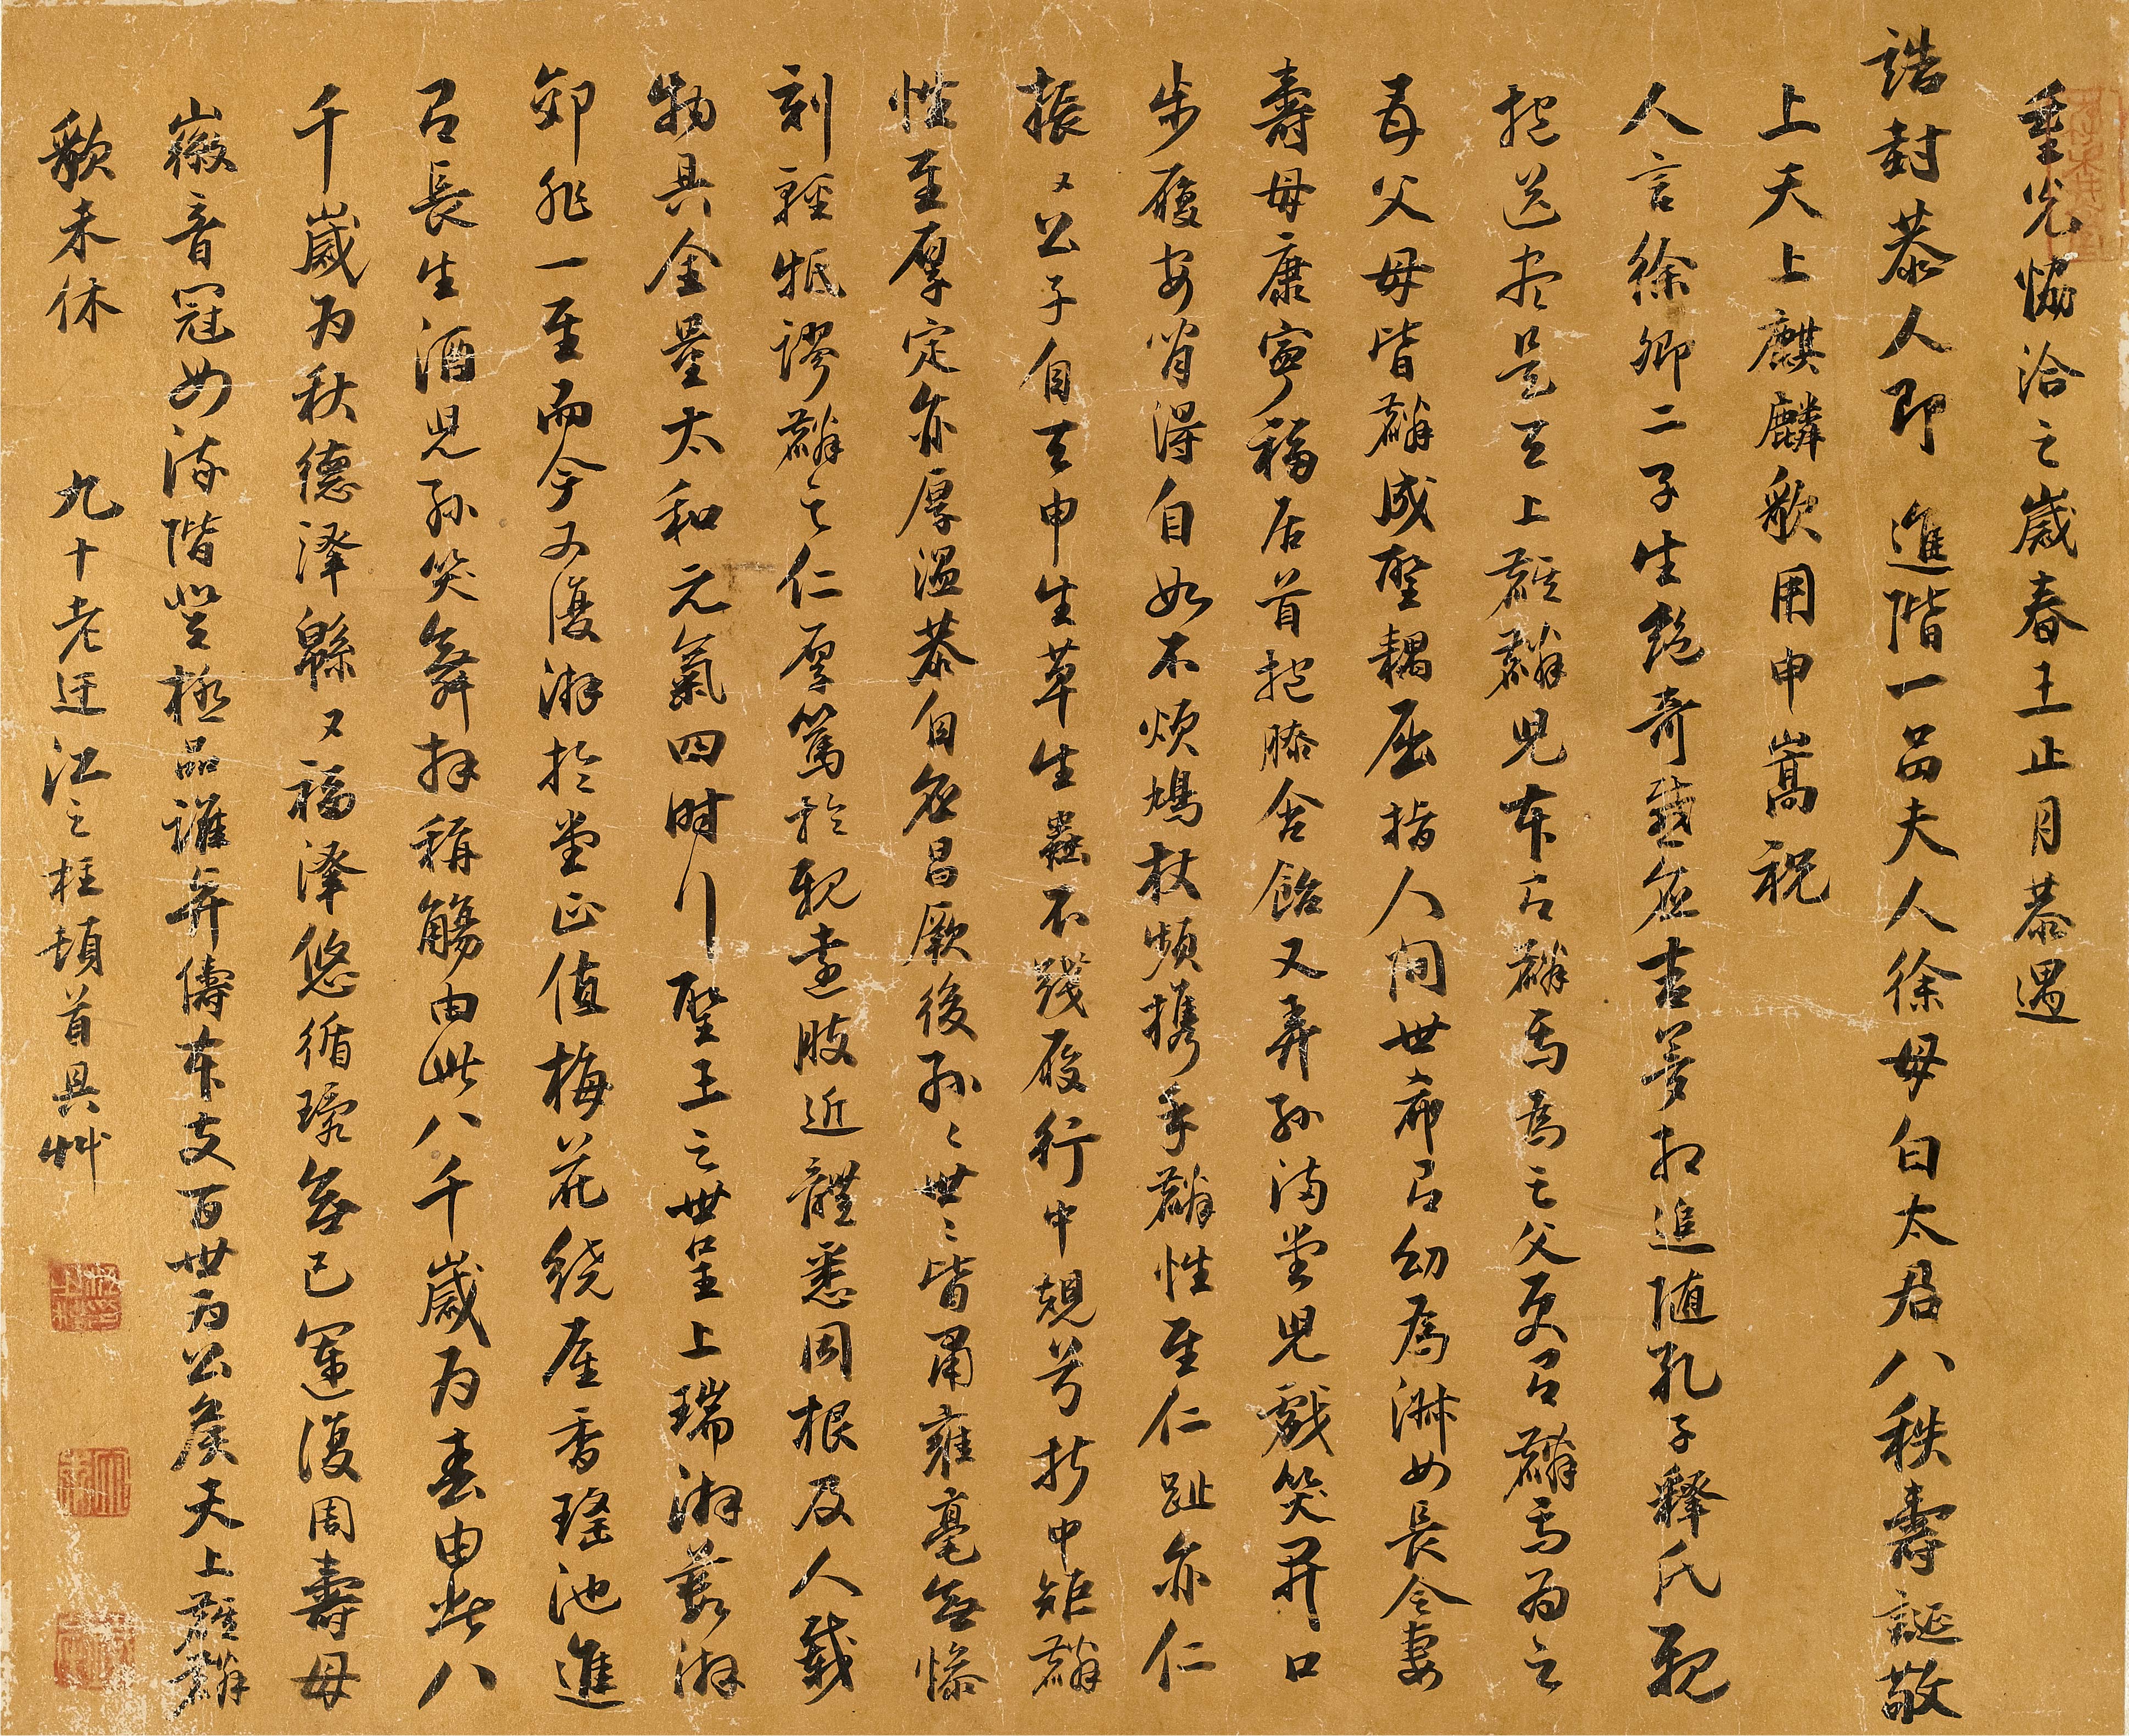 重光協洽之歲春王正月恭遇
誥封恭人即進階一品夫人徐母白太君八秩壽誕敬
上天上麒麟歌用申嵩祝
人言徐卿二子生絕奇感應吉夢相追隨孔子釋氏親
抱送盡是天上麒麟兒本以麟焉為之父更以麟焉為之
母父母皆麟成聖耦屈指人間世希有幼為淋女長令妻
壽母康寧福居首抱膝含飴又弄孫滿堂兒戲笑開口
步履安閒得自如不煩鳩杖頻攜手麟性至仁趾亦仁
振々公子自天申生草生蟲不踐履行中規兮折中矩麟
性至厚定亦厚溫恭自應昌厥後孫々世々皆肅雍毫無慘
刻輕牴謬麟之仁厚篤於親遠肢近體悉因根及人載
物具全量太和元氣四時行聖王之世呈上瑞游藪游
郊非一至而今又復游於堂正值梅花繞屋香瑤池進
以長生酒兒孫笑舞拜稱觴由此八千歲為春由此八
千歲為秋德澤緜々福澤悠循環無已運復周壽母
徽音冠女流階登極品誰與儔本支百世為公矦天上麒麟
歌未休
九十老迂江之柱頓首具艸